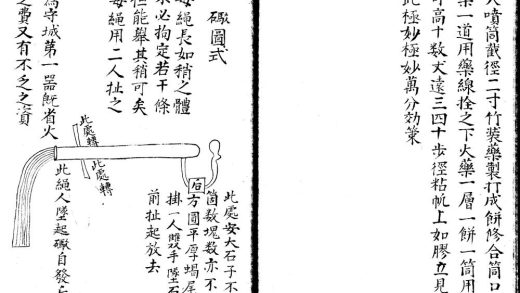 噴筒截徑二寸竹裝藥製打成餅修合筒口
藥一道用藥線拴之下火藥一層一餅一筒用
高十數丈遠三四十步徑粘帆上如膠立見
此極妙極妙萬分效策
礮圖式
每繩長如稍之體
必拘定若干條
但能舉其稍可矣
每繩用二人扯之
為守城第一器既省火
之費又有不乏之資
此處轉
此處轉
石
此處安大石子不
箇數塊數亦不
方圓平厚蝎尾
掛一人雙手墜石
前扯起放去
此繩人墜起礮自發